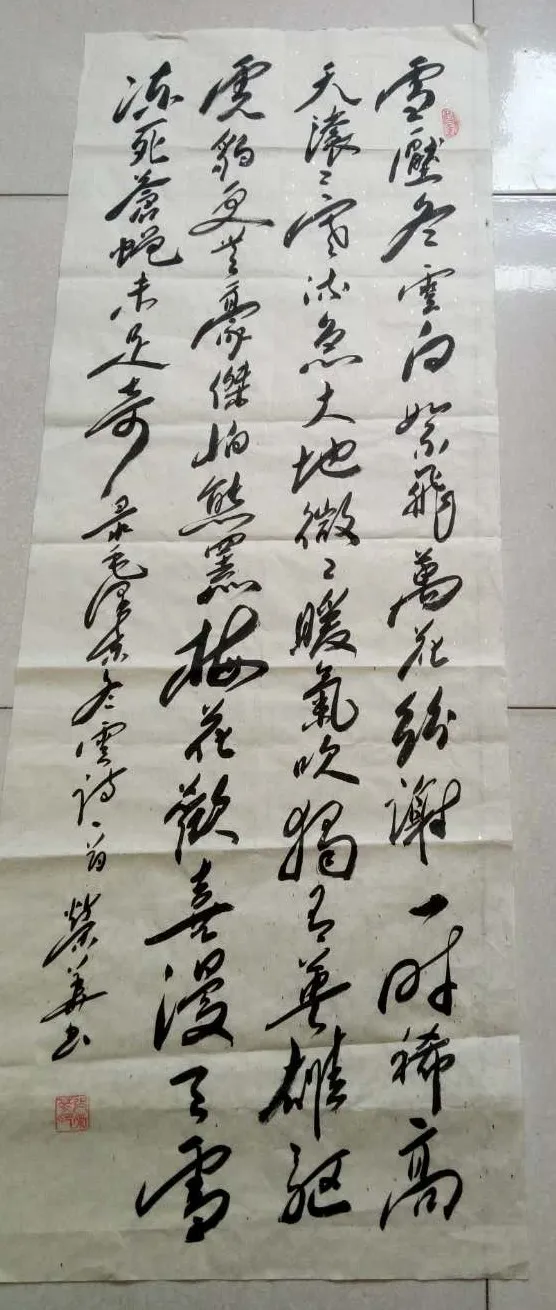 雪壓冬雲白絮飛萬花紛謝一時稀高
天滚〻寒流急大地微〻暖氣吹獨有英雄驅
虎豹更無豪傑怕熊羆梅花歡喜漫天雪
冻死蒼蝇未足奇录毛澤东冬雲詩一首榮華书